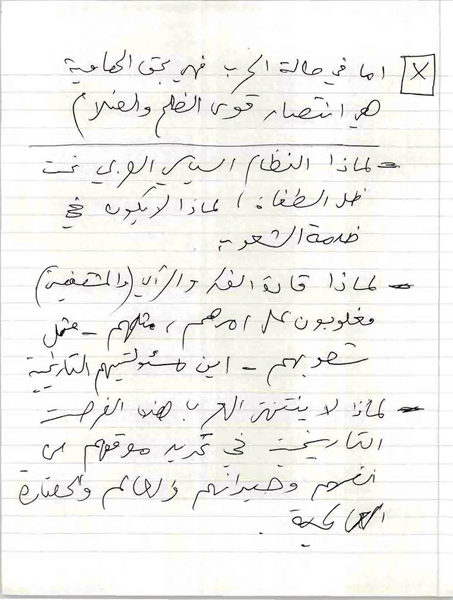 X اما في حالة الحرب فهي بحق الجماعية
هي انتصار قوى الظلم والظلام
- لماذا النظام السياسي العربي تحت
ظل الطغاة، لماذا لا يكون في
خدمة الشعوب
- لماذا قادة الفكر والرأي (والمثقفين)
مغلوبون على أمرهم، مثلهم - مثل
شعوبهم - اين مسئوليتهم التاريخية
- لماذا لا ينتهز العرب هذه الفرصة
التاريخية في تحديد موقفهم من
انفسهم وجيرانهم والعالم والحضارة